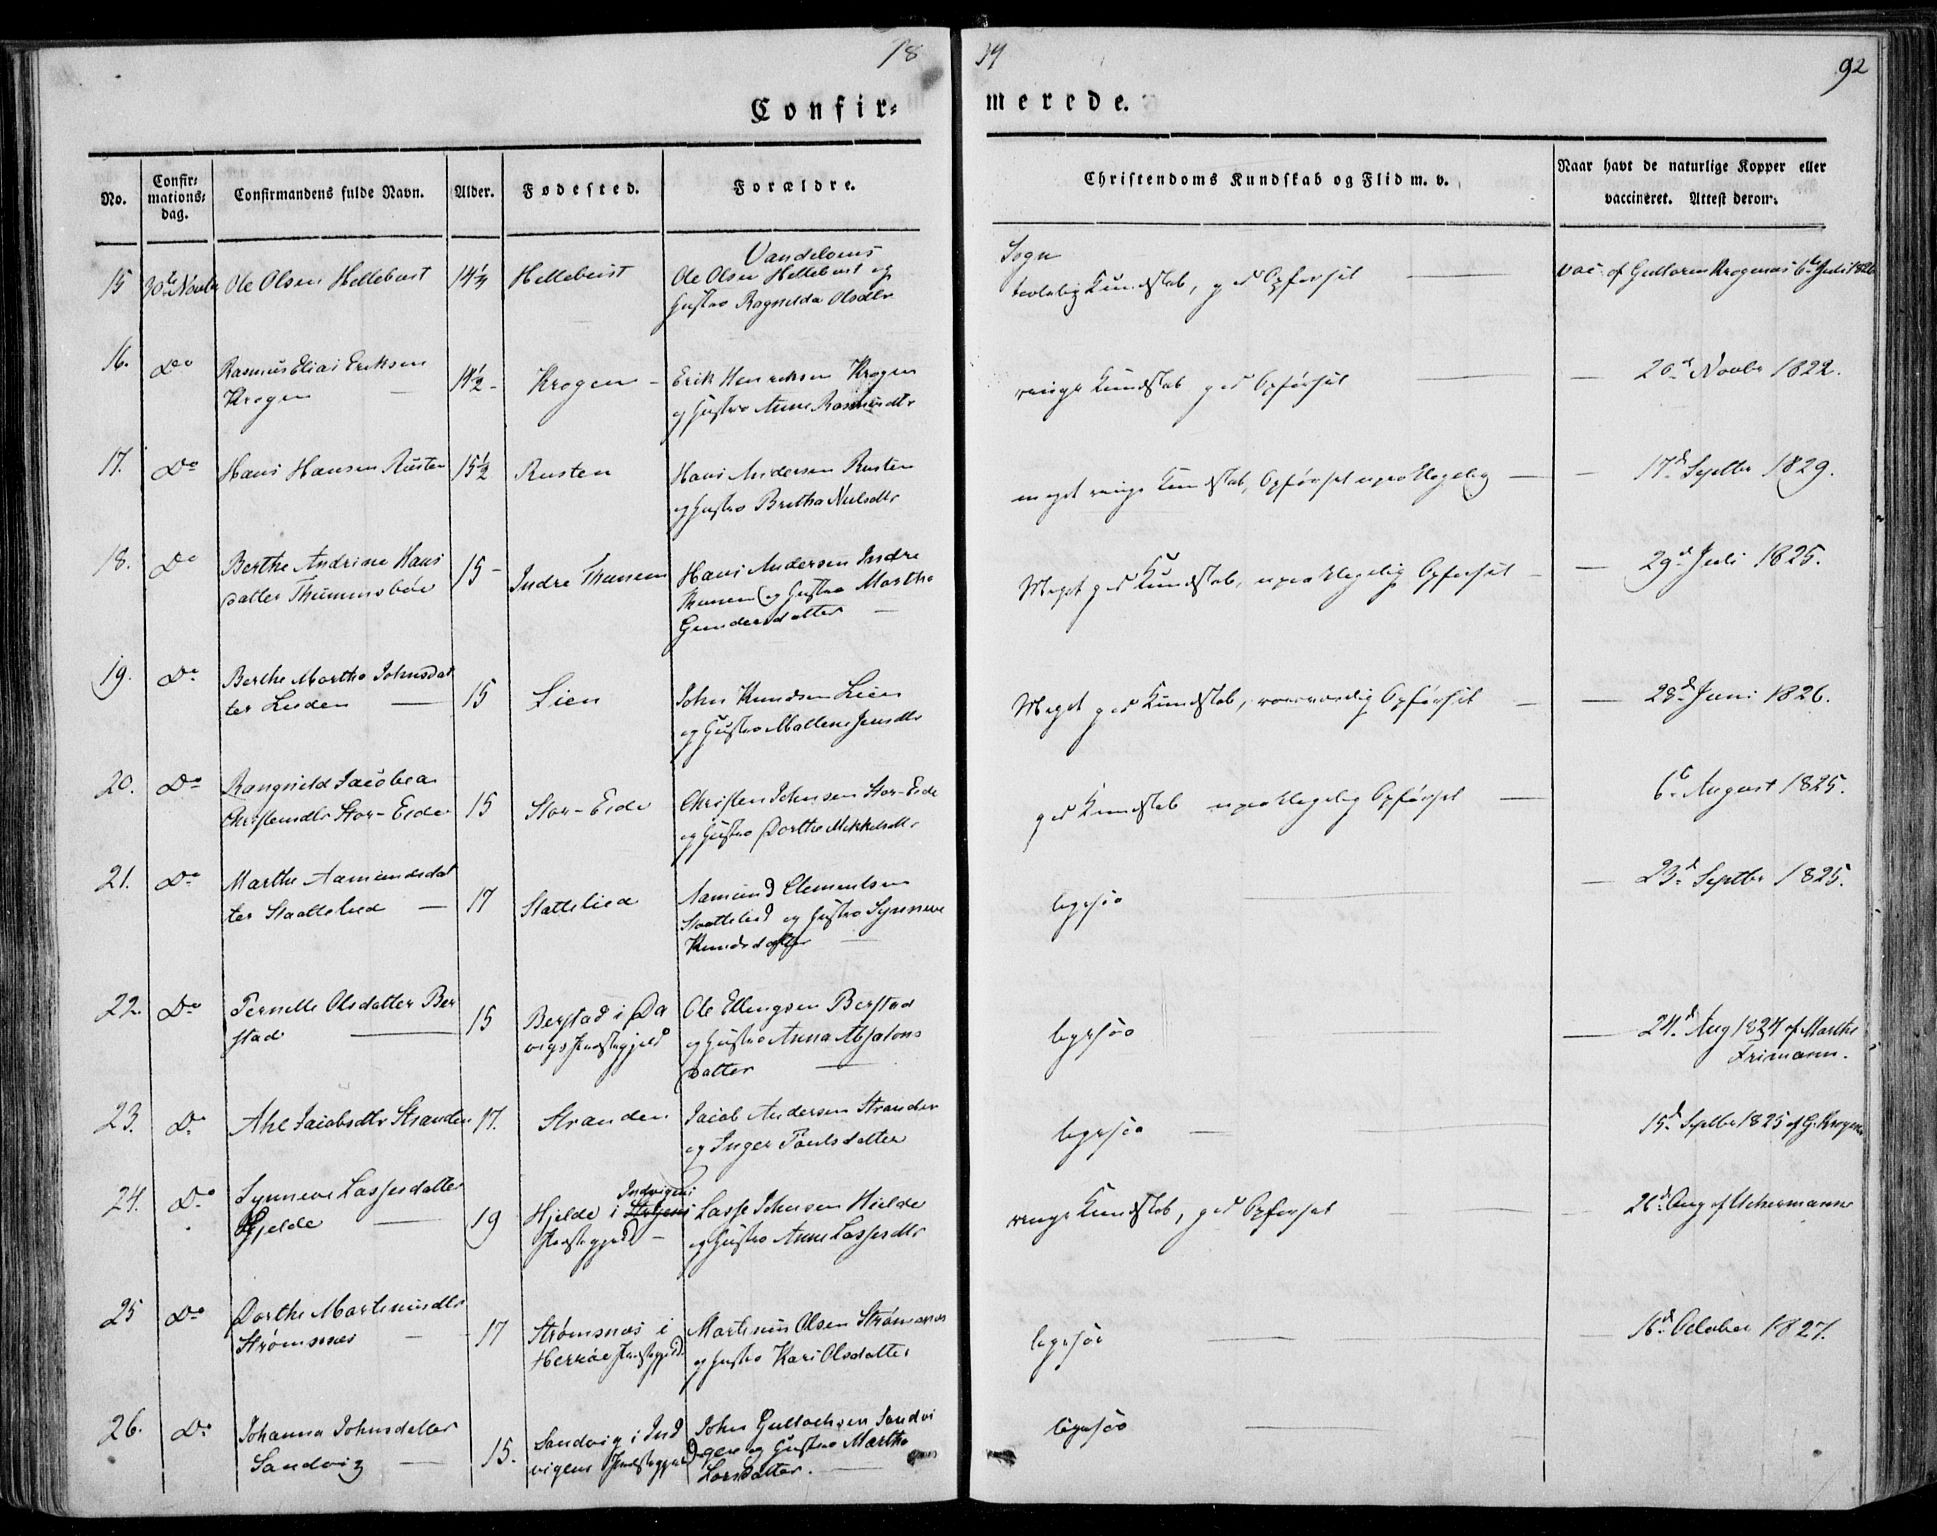 18 34
92
Confir= merede.
No. Confir= mations= dag. Confirmandens fulde Navn. Alder. Fødested. Forældre. Christendoms Kundskab og Flid m. v. Naar havt de naturlige Kopper eller vaccineret. Attest derom.
Vandelvens Sogn
15 30te Novbr Ole Olsen Hellebust 14 1/2 Hellebust Ole Olsen Hellebust og Hustro Ragnilda Olsdtr temlelig Kundskab, god Opførsel vac. af Guttorm Krogenæs 6te Juli 1820
16. Do Rasmus Elias Eriksen Krogen 14 1/2 Krogen Erik Henriksen Krogen og Hustro Anne Rasmusdtr ringe Kundskab god Opførsel 20d Novbr 1822.
17. Do Hans Hansen Rusten 15 1/2 Rusten Hans Andersen Rusten og Hustro Brithe Nielsdtr meget ringe Kundskab, Opførsel upaaklagelig 17d Septbr 1829.
18. Do Berthe Andrine Hans datter Thunemsbøe 15 Indre Thunem Hans Andersen Indre Thunem og Hustro Marthe Gundersdatter Meget god Kundskab, upaaklagelig Opførsel 29d Juli 1825.
19. Do Berthe Marthe Johnsdat ter Lien 15 Lien John Knudsen Lien og Hustro Mallene Jensdtr Meget god Kundskab, roesværdig Opførsel 28d Juni 1826.
20. Do Rangnild Jacobea Christensdtr Stor-Eide 15 Stor-Eide Christen Johnsen Stor-Eide og Hustro Dorthe Mikkelsdtr god Kundskab upaaklagelig Opførsel 6te August 1825.
21. Do Marthe Aamundsdat ter Slattelied 17 Slattelied Aamund Clementsen Slattelied og Hustro Synneve Knudsdatter ligesaa 23d Septbr 1825.
22. Do Pernille Olsdatter Ber stad 15 Berstad i Da vigs Præstegjeld Ole Ellingsen Berstad og Hustro Anna Absalons datter ligesaa 24d Aug 1824 af Marthe Frimann.
23. Do Ahe Jacobsdtr Stranden 17. Stranden Jacob Andersen Stranden og Inger Poulsdatter ligesaa 15d Septbr 1825 af G. Krogenæs
24. Do Synneve Lassesdatter Hjelde 19 Hjelde i Indvigens Præstegjeld Lasse Johnsen Hjelde og Hustro Anne Lassesdtr ringe Kundskab, god Opførsel 26d Aug af Uchermann
25 Do Dorthe Martinusdtr Strømsnæs 17 Strømsnæs i Herrøe Præstegjeld Martinus Olsen Strømsnæs og Hustro Kari Olsdatter ligesaa 16d October 1827.
26. Do Johanna Johnsdatter Sandvig 15. Sandvig i Ind vigens Præstegjeld John Gullachsen Sandvi gen og Hustro Marthe Larsdatter. ligesaa